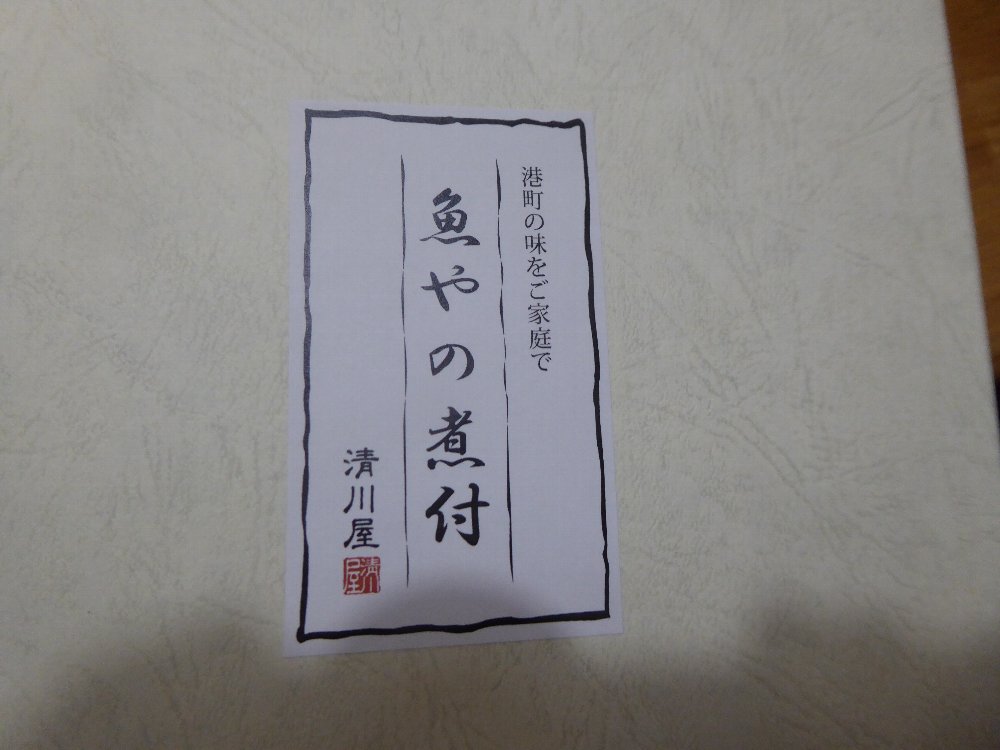 港町の味をご家庭で
魚やの煮付
清川屋
清川屋